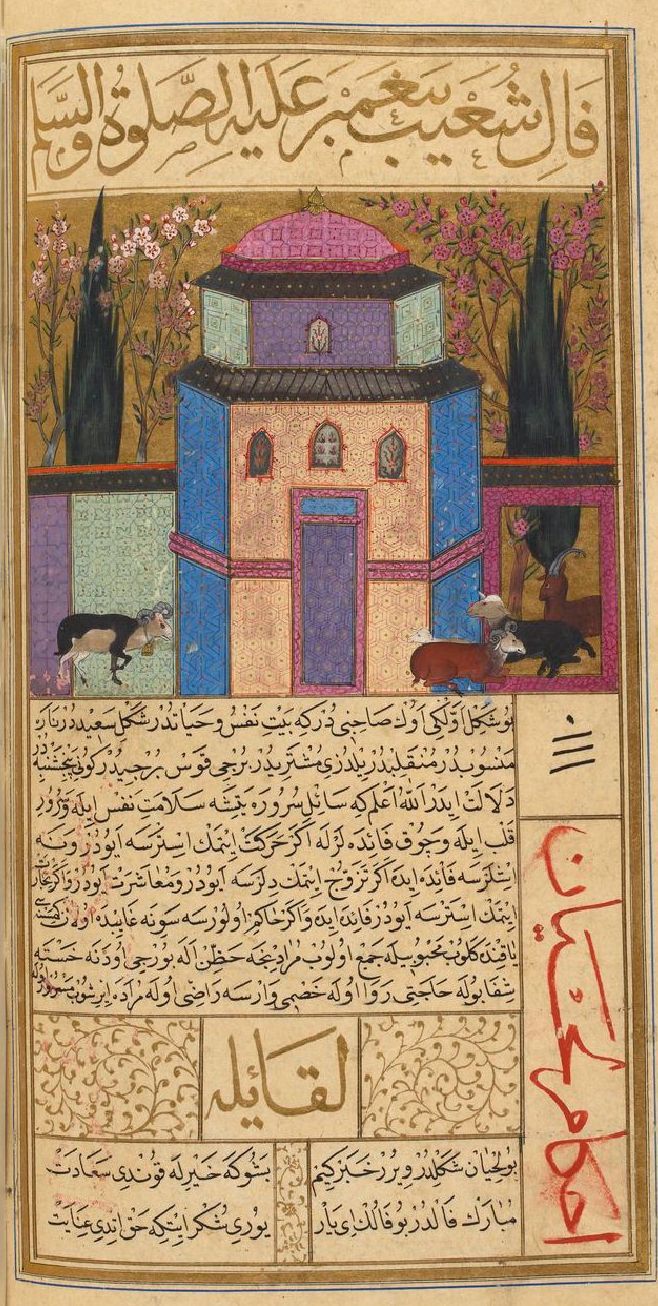 فال شعيب پيغمبر عليه الصلوة والسلم
بو شكل اولكى اوك صاحبى در كه بيت نفس و حياتدر شكل سعيددر ناره
منسوبدر منقلبدر يلدزى مشتريدر برجى قوس برجيدر كونى پنجشنبه در
دلالت ايدر الله اعلم كه سائل سروره يتمشه سلامت نفس ايله و سرور
قلب ايله وچوق فائده لر اله اكر حركت ايتمك استرسه ايودر و نه
اشلرسه فائده ايده اكر تزوج ايتمك دلرسه ايودر و معاشرت ايودر و اكر
ايتمك استرسه ايودر فائده ايده و اكر حاكم اولورسه سونه غايبده اولان
ياقنده كلوب محبوبيله جمع اولوب مرادنجه حظن اله بورجى اودنه خسته
شفا بوله حاجتى روا اوله خصمى وارسه راضى اوله مراده ايرشوب مسرور اوله
احكام لحيان
لقائله
بو لحيان شكلدر ويرر خبر كيم
بشوكه خير له قوندى سعادت
مبارك فالدر بو فالك اى يار
يورى شكر ايتكه حق اندى عنايت